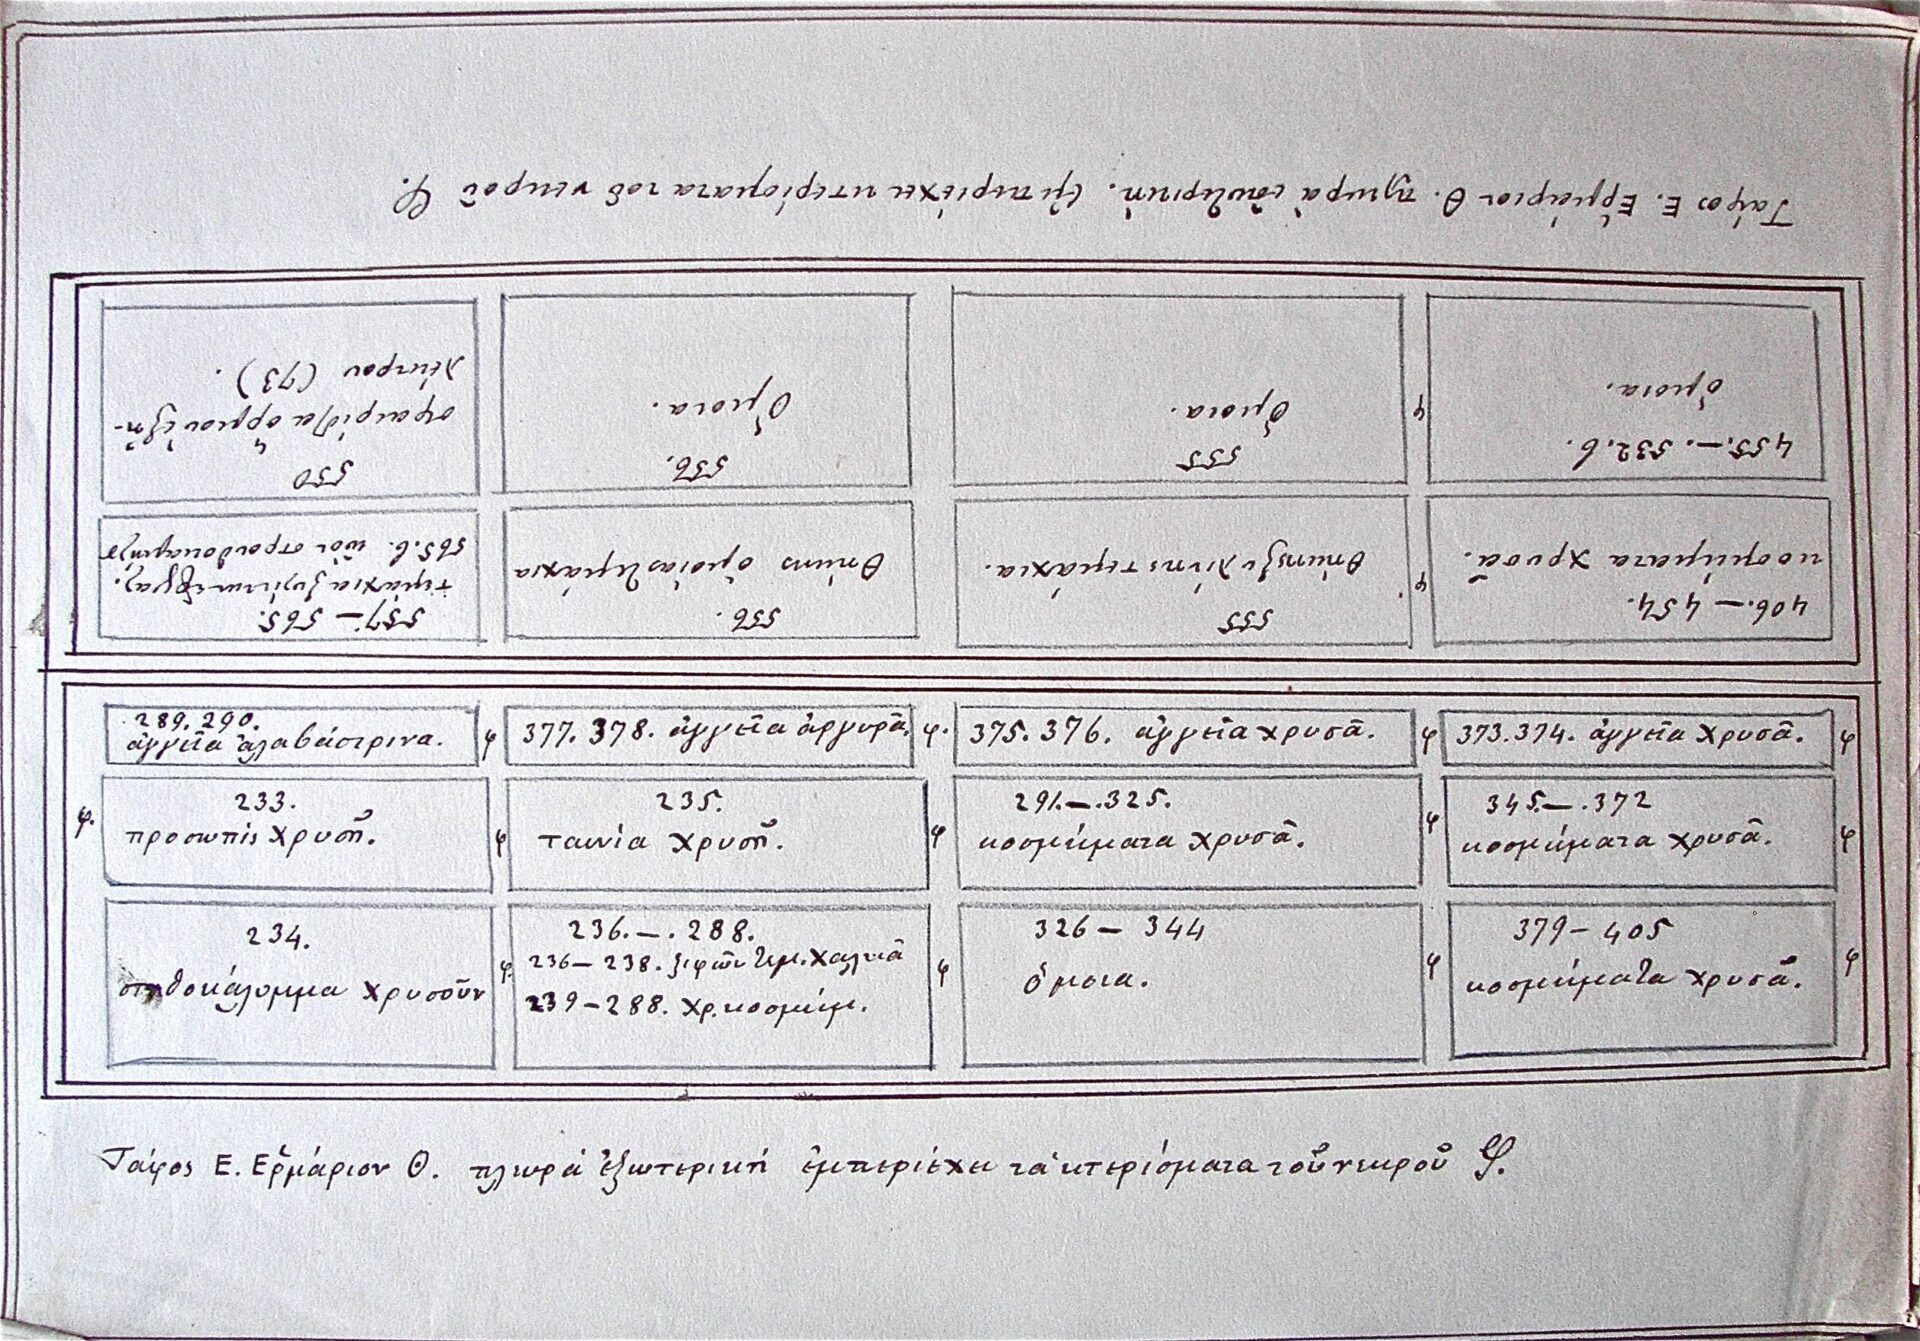 Τάφος Ε. Ἑρμάριον Θ. πλευρὰ ἐσωτερική. ἐμπεριέχει κτερίσματα τοῦ νεκροῦ φ.
455.—.532.β.
ὅμοια.
φ
555
Ὅμοια.
556.
Ὅμοια.
550
σφαιρίδια ὅρμου ἐξ ἠ-
λέκτρου (73).
406.—454.
κοσμήματα χρυσᾶ.
φ
555
θήκης ξυλίνης τεμάχια.
556.
θήκης ὁμοίας τεμάχια
557.—565.
τεμάχια ξυλίνων ἐργαλ.
565.β. ὠὸν στρουθοκαμήλ
289.290.
ἀγγεῖα ἀλαβάστρινα.
φ
377. 378. ἀγγεῖα ἀργυρᾶ.
φ.
375. 376. ἀγγεῖα χρυσᾶ.
φ
373.374. ἀγγεῖα χρυσᾶ.
φ
φ.
233.
προσωπὶς χρυσῆ.
φ
235.
ταινία χρυσῆ.
φ
291.—.325.
κοσμήματα χρυσᾶ.
φ
345.—.372
κοσμήματα χρυσᾶ.
φ
234.
στηθοκάλυμμα χρυσοῦν
φ.
236.—.288.
236—238. ξιφῶν τεμ. χαλκᾶ
239—288. χρ. κοσμήμ.
φ
326 — 344
ὅμοια.
φ
379 — 405
κοσμήματα χρυσᾶ.
φ
Τάφος Ε. Ἑρμάριον Θ. πλευρὰ ἐξωτερικὴ ἐμπεριέχει τὰ κτερίσματα τοῦ νεκροῦ φ.